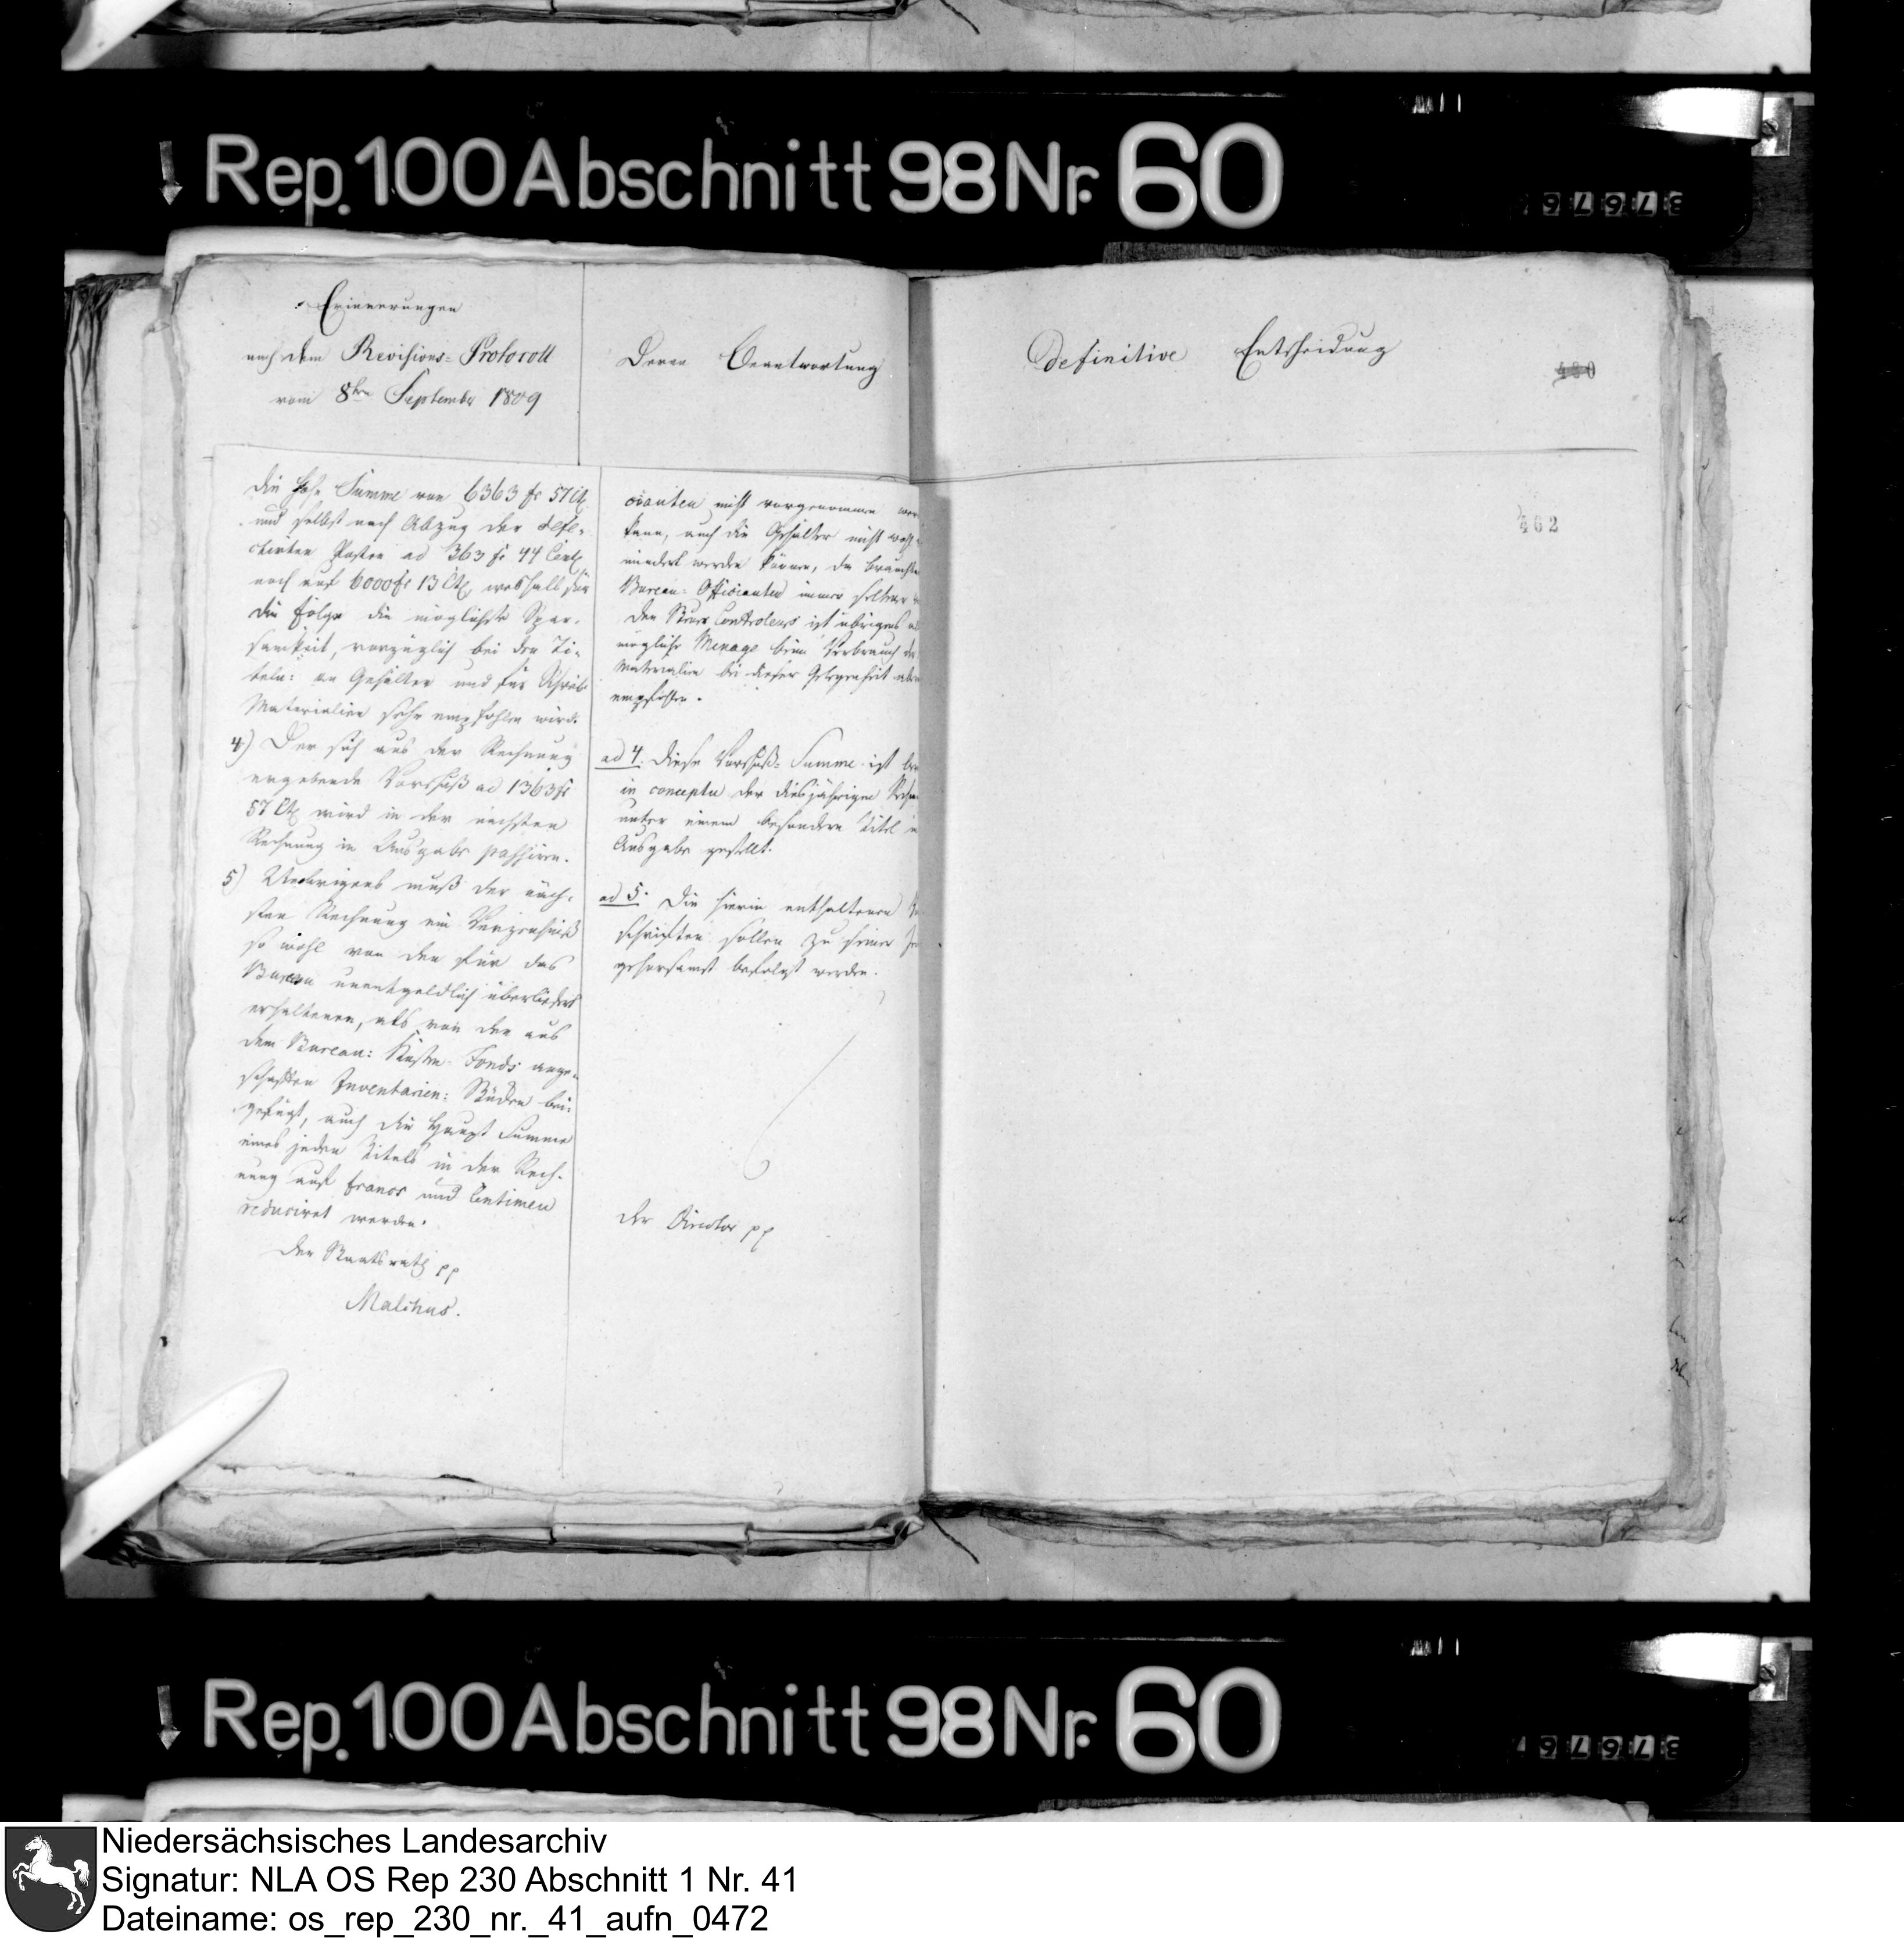 Rep. 100 Abschnitt 98 Nr. 60
Erinnerungen
nach dem Revisions-Protocoll
vom 8ten September 1809
Deren Beantwortung
Definitive Entscheidung
480
462
die hohe Summe von 6363 fr 57 Ct
und selbst nach Abzug der defe-
ctirten Posten ad 363 fr 44 Cent
noch auf 6000 fr 13 Ct, weshalb für
die Folge die möglichste Spar-
samkeit, vorzüglich bei den Ti-
teln: an Gehälter und für Schreib
Materialien sehr empfohlen wird.
4) Der sich aus der Rechnung
ergebende Vorschuß ad 1363 fr
57 Ct wird in der nächsten
Rechnung in Ausgabe passiren.
5) Uebrigens muß der näch-
sten Rechnung ein Verzeichniß
so wohl von den für das
Bureau unentgeldlich überliefert
erhaltenen, als von den aus
dem Bureau: Kosten-Fonds ange-
schafften Inventarien: Stücken bei-
gefügt, auch die Haupt Summe
eines jeden Titels in der Rech-
nung auf francs und Centimen
reduciret werden.
Der Staatsrath pp
Malchus.
cianten nicht vorgenommen
kann, auch die Gehälter nicht
mindert werden können, da
Bureau-Officianten immer seltener
Den Steuer Controleurs ist übrigens
mögliche Menage beim Verbrauch der
Materialien bei dieser Gelegenheit
empfohlen.
ad 4. Diese Vorschuß-Summe ist
in conceptu der diesjährigen
unter einem besondern Titel in
Ausgabe gestellt.
ad 5. Die hierin enthaltenen
schriften sollen zu seiner
gehorsamst befolgt werden.
Der Director pp
Rep. 100 Abschnitt 98 Nr. 60
Niedersächsisches Landesarchiv
Signatur: NLA OS Rep 230 Abschnitt 1 Nr. 41
Dateiname: os_rep_230_nr._41_aufn_0472